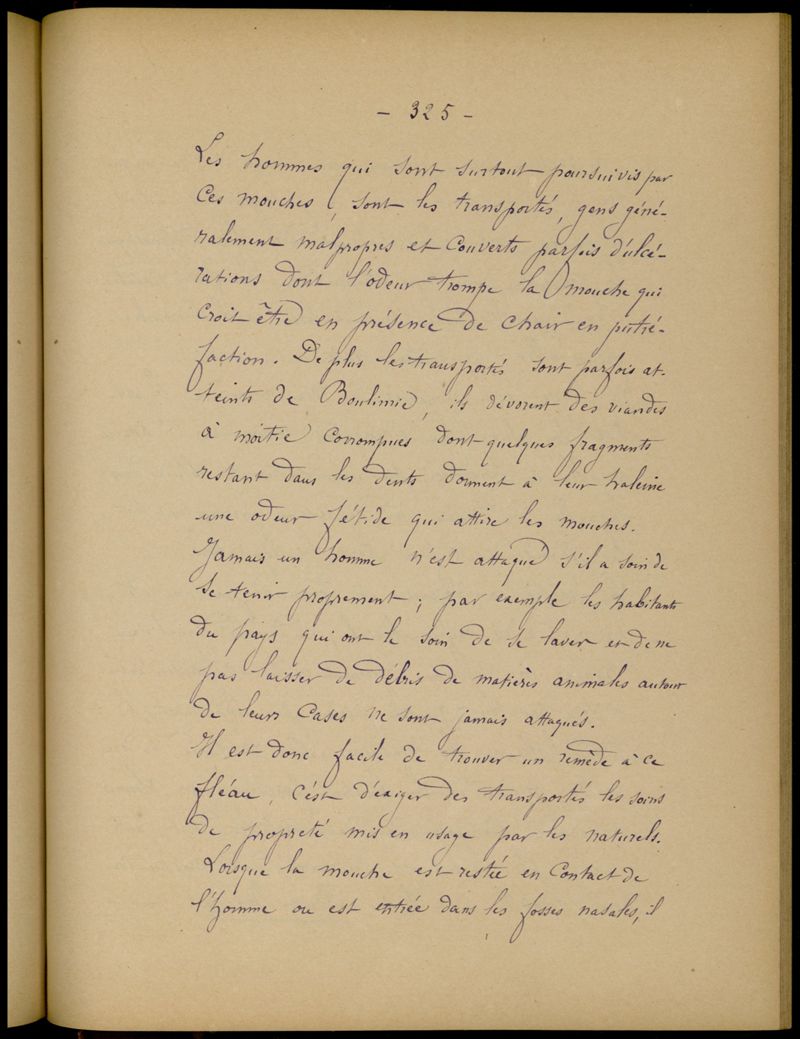 - 325 -
Les hommes qui sont surtout poursuivis par
ces mouches, sont les transportés, gens géné-
ralement malpropres et couverts parfois d'ulcé-
rations dont l'odeur trompe la mouche qui
croit être en présence de chair en putré-
faction. De plus les transportés sont parfois at-
teints de Boulimie, ils dévorent des viandes
à moitié corrompues dont quelques fragments
restant dans les dents donnent à leur haleine
une odeur fétide qui attire les mouches.
Jamais un homme n'est attaqué s'il a soin de
se tenir proprement; par exemple les habitants
du pays qui ont le soin de se laver et de ne
pas laisser de débris de matières animales autour
de leurs cases ne sont jamais attaqués.
Il est donc facile de trouver un remède à ce
fléau, c'est d'exiger des transportés les soins
de propreté mis en usage par les naturels.
Lorsque la mouche est restée en contact de
l'homme ou est entrée dans les fosses nasales, il